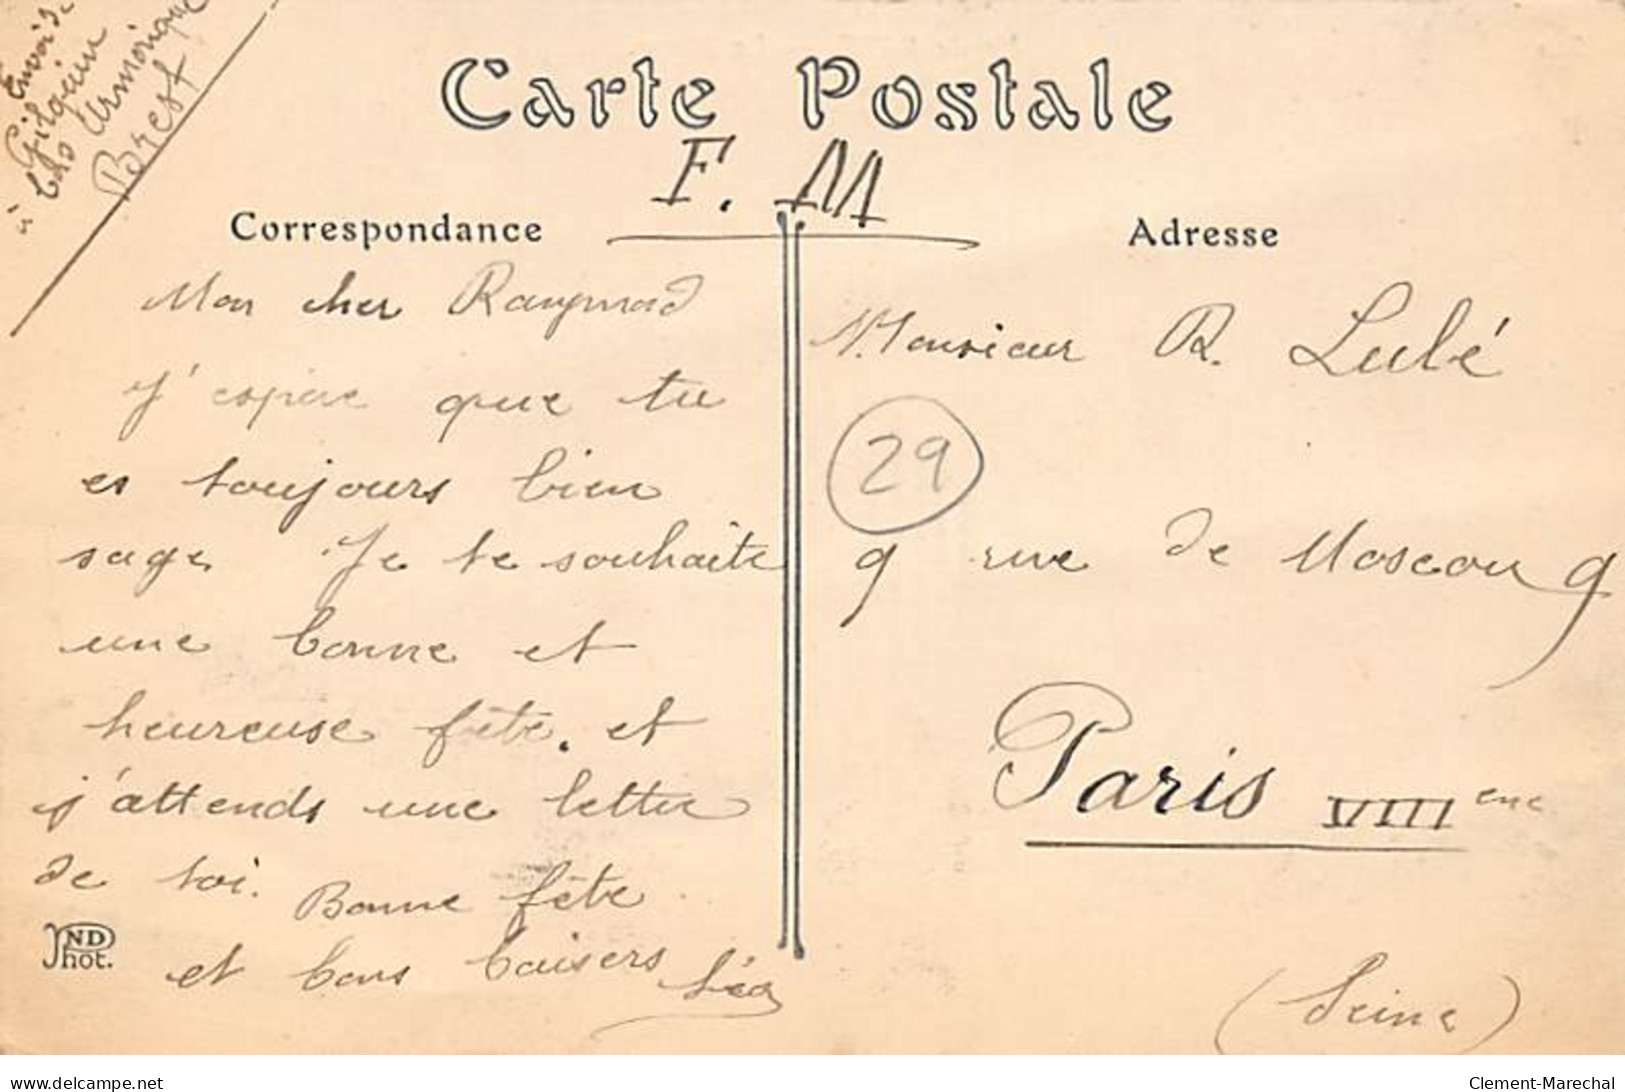 Envoi de
Gilquin
à bord Armorique
Brest
Carte Postale
F. M
Correspondance
Adresse
Mon cher Raymond
J'espère que tu
es toujours bien
sage. Je te souhaite
une bonne et
heureuse fête. et
j'attends une lettre
de toi. Bonne fête
et bons baisers Léo
ND
Phot.
Monsieur R. Lulé
29
9 rue de Moscou 9
Paris VIII ème
(Seine)
delcampe.net
Clement-Marechal